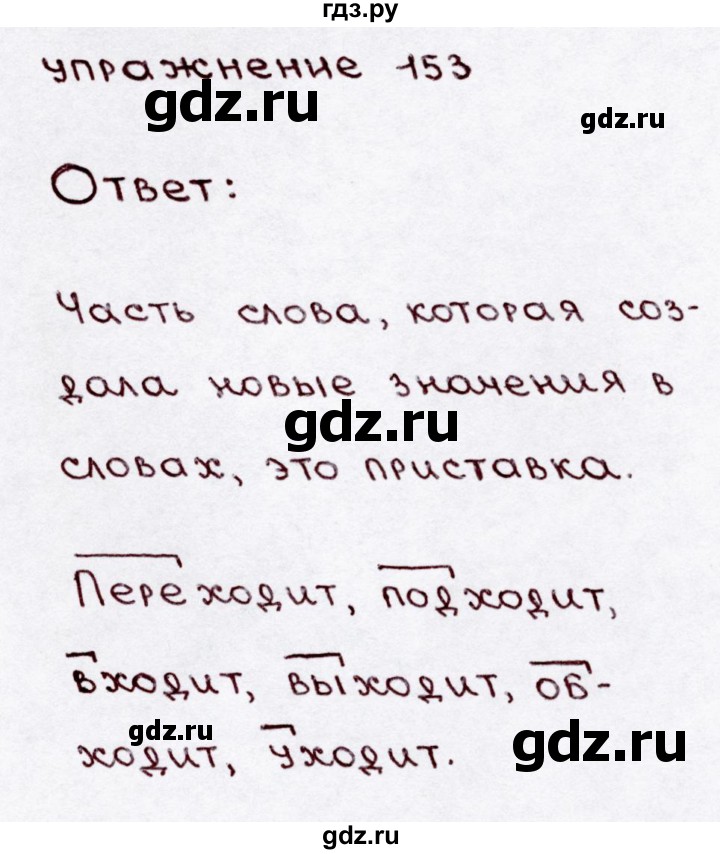 гдз.ру
упражнение 153
gdz.ru
gdz.ru
Ответ:
Часть слова, которая соз-
дала новые значения в
gdz.ru
словах, это приставка.
Переходит, подходит,
входит, выходит, об-
gdz.ru
ходит, уходит.
gdz.ru
gdz.ru